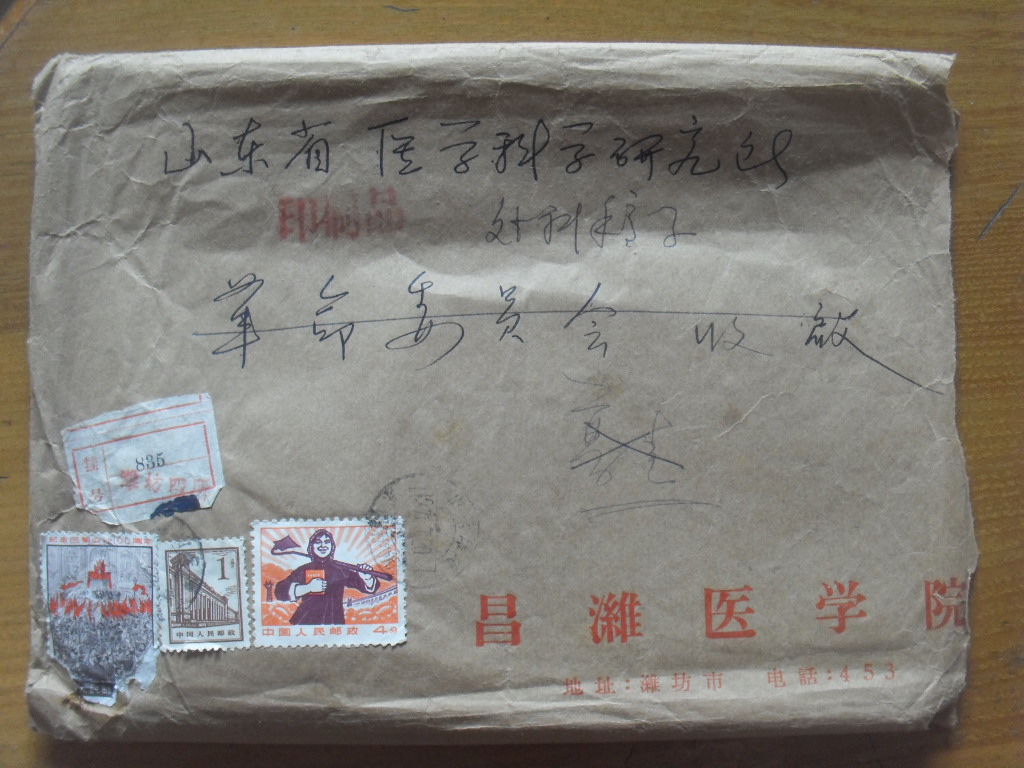 山东省医学科学研究所
印刷品
外科稿子
革命委员会 收 啟
835
挂号
潍坊四
纪念巴黎公社100周年
1分
中国人民邮政
中国人民邮政 4分
昌濰医学院
地址:濰坊市 电話:453